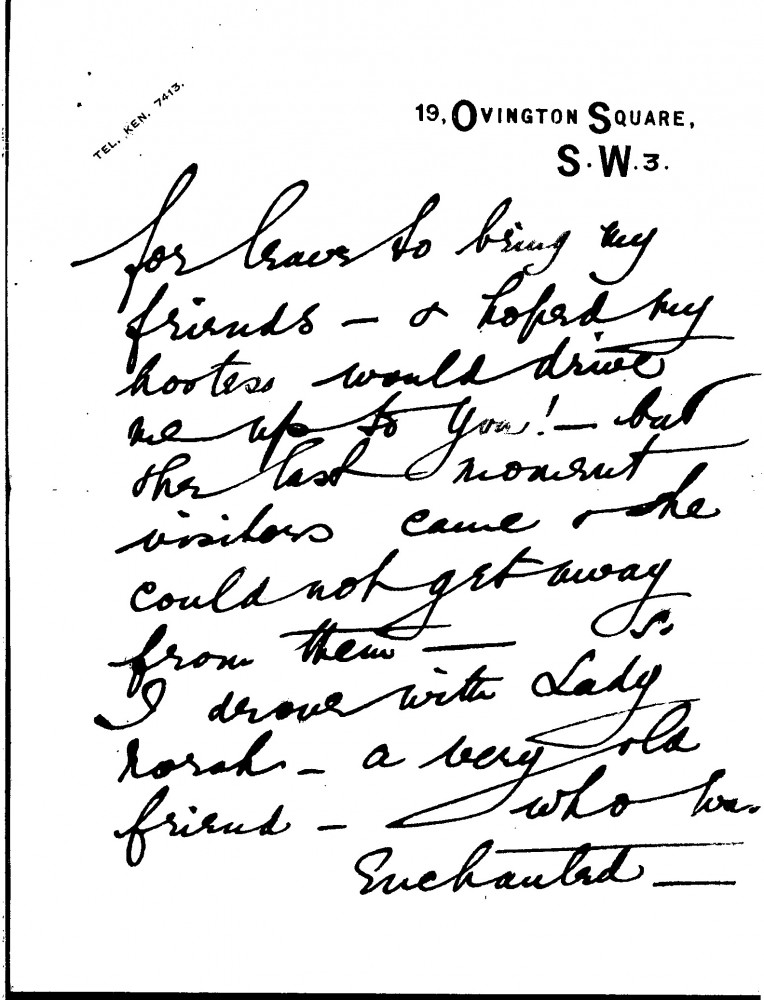 TEL. KEN. 7413.
19, OVINGTON SQUARE,
S.W.3.
for leave to bring my
friends — & hoped my
hostess would drive
me up to you! — but
the last moment
visitors came & she
could not get away
from them — So
I drove with Lady
Norah — a very old
friend — who was
Enchanted —